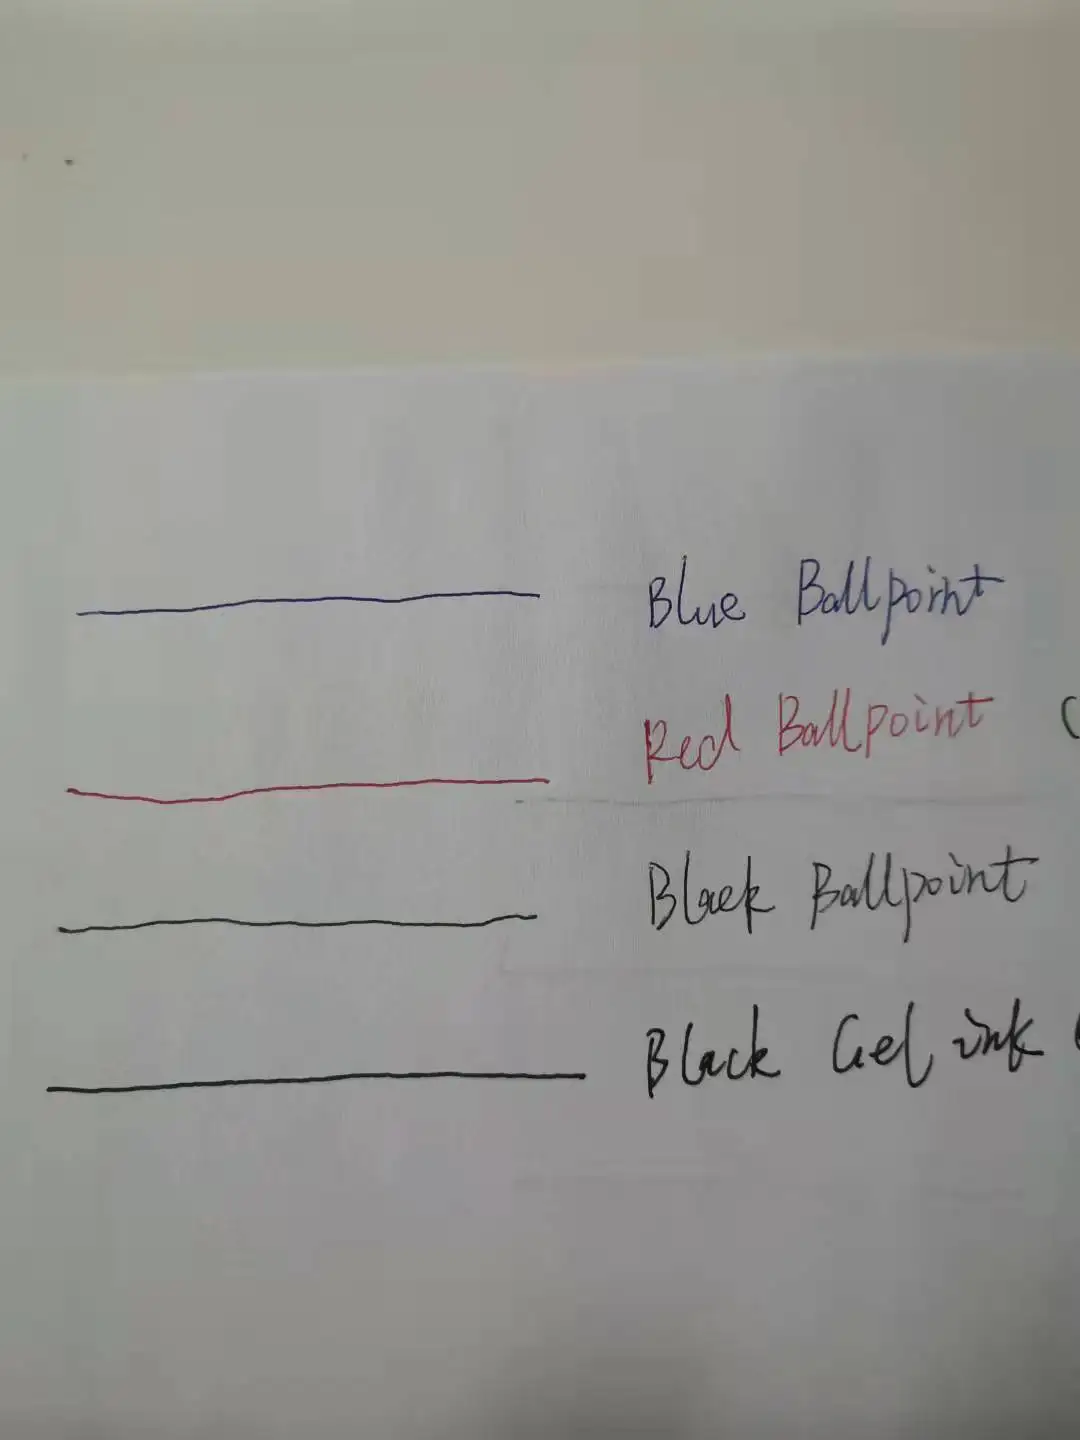 Blue Ballpoint
Red Ballpoint (
Black Ballpoint
Black Gel ink (